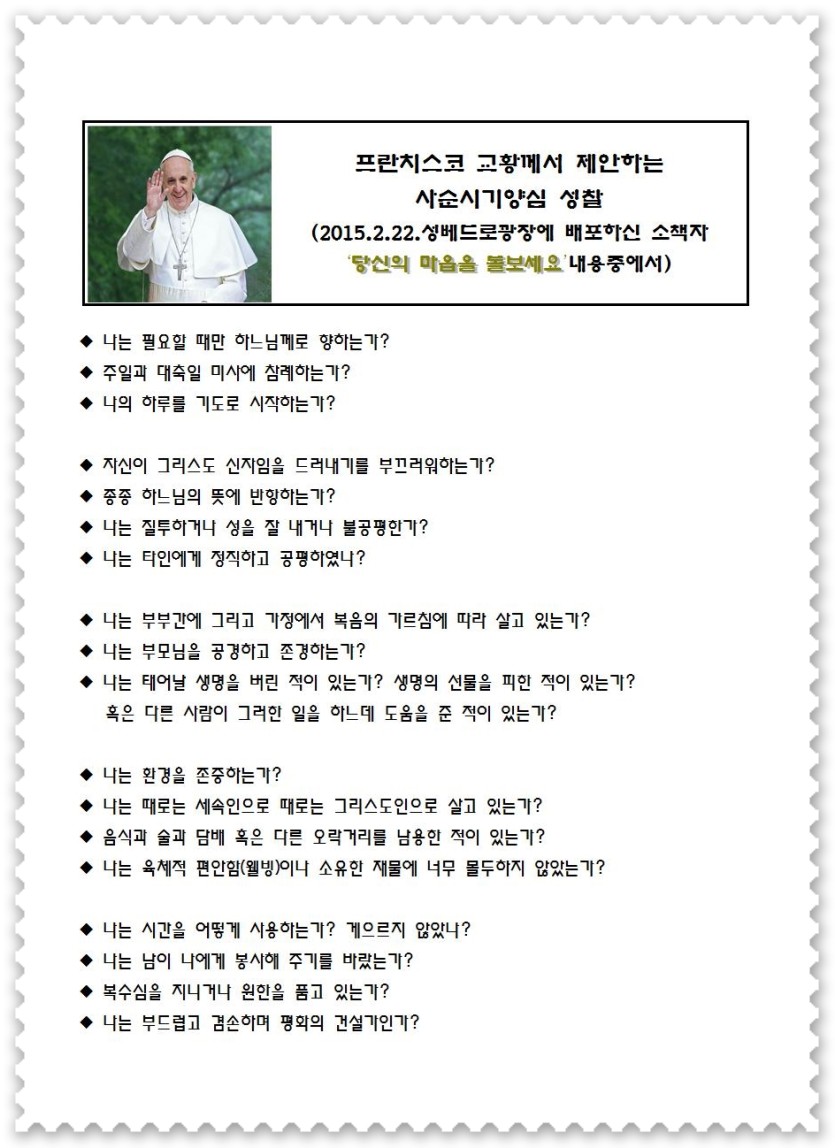 프란치스코 교황께서 제안하는
사순시기양심 성찰
(2015.2.22.성베드로광장에 배포하신 소책자
'당신의 마음을 돌보세요'내용중에서)
◆ 나는 필요할 때만 하느님께로 향하는가?
◆ 주일과 대축일 미사에 참례하는가?
◆ 나의 하루를 기도로 시작하는가?
◆ 자신이 그리스도 신자임을 드러내기를 부끄러워하는가?
◆ 종종 하느님의 뜻에 반항하는가?
◆ 나는 질투하거나 성을 잘 내거나 불공평한가?
◆ 나는 타인에게 정직하고 공평하였나?
◆ 나는 부부간에 그리고 가정에서 복음의 가르침에 따라 살고 있는가?
◆ 나는 부모님을 공경하고 존경하는가?
◆ 나는 태어날 생명을 버린 적이 있는가? 생명의 선물을 피한 적이 있는가?
혹은 다른 사람이 그러한 일을 하느데 도움을 준 적이 있는가?
◆ 나는 환경을 존중하는가?
◆ 나는 때로는 세속인으로 때로는 그리스도인으로 살고 있는가?
◆ 음식과 술과 담배 혹은 다른 오락거리를 남용한 적이 있는가?
◆ 나는 육체적 편안함(웰빙)이나 소유한 재물에 너무 몰두하지 않았는가?
◆ 나는 시간을 어떻게 사용하는가? 게으르지 않았나?
◆ 나는 남이 나에게 봉사해 주기를 바랐는가?
◆ 복수심을 지니거나 원한을 품고 있는가?
◆ 나는 부드럽고 겸손하며 평화의 건설가인가?